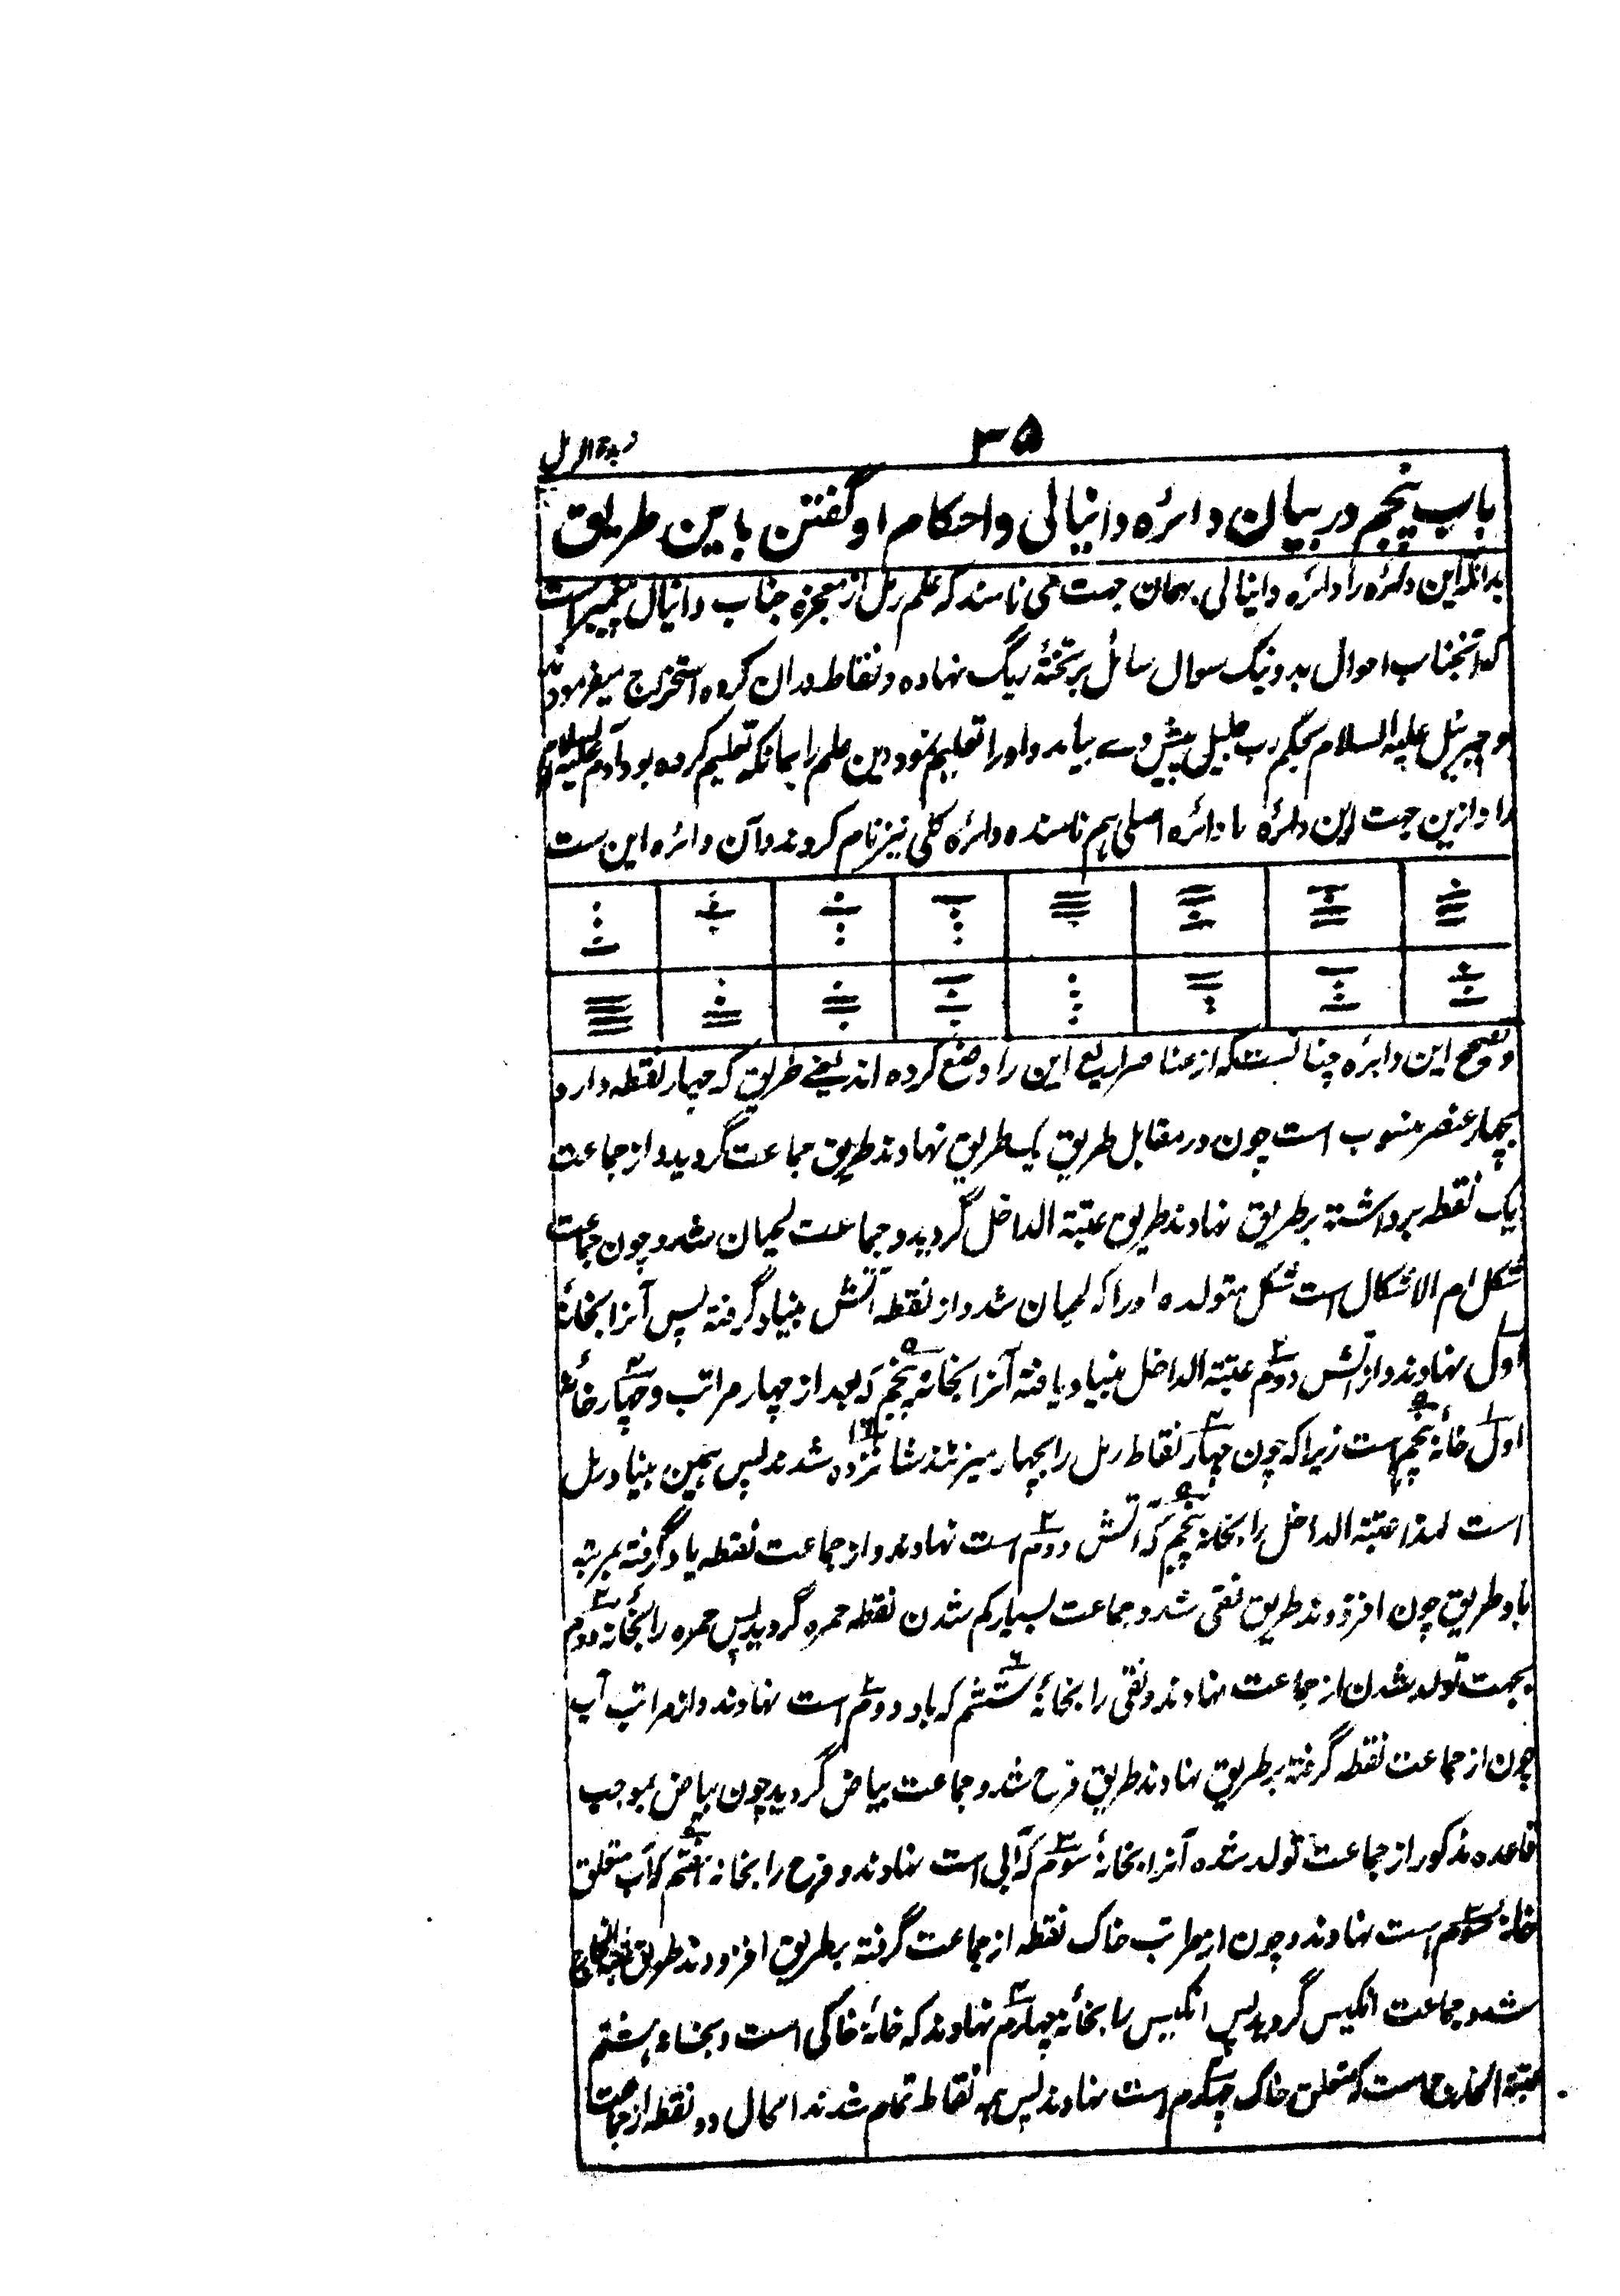 ۳۵
زبدة الرمل
باب پنجم در بیان دائره دانیالی و احکام او گفتن باین طریق
بدانکه این دائره را دائره دانیالی بهمان جهت می نامند که علم رمل از معجزه جناب دانیال پیغمبر است
که آنجناب احوال بد و نیک سوال سائل بر تختهٔ ریگ نهاده و نقاط در ان کرده استخراج میفرمودند
و جبرئیل علیه السلام بحکم رب جلیل پیش وے بیامد و اورا تعلیم نمود این علم را بدانکه تعلیم کرده بود آدم علیه السلام
را و ازین جهت این دائره را دائره اصلی هم نامند و دائره کلی نیز نام کردند و آن دائره این ست
و توضیح این دایره چنانست که از عناصر اربع این را وضع کرده اند یعنے طریق که چهار نقطه دارد
بچهار عنصر منسوب است چون در مقابل طریق یک طریق نهادند طریق جماعت گردید و از جماعت
یک نقطه برداشته بر طریق نهادند طریق عتبة الداخل گردید و جماعت لحیان شد و چون جماعت
شکل ام الاشکال است شکل متولده او را که لحیان شد و از نقطه آتش بنیاد گرفته پس آنرا بخانهٔ
اول نهادند و از آتش دوم عتبة الداخل بنیاد یافته آنرا بخانه پنجم که بعد از چهار مراتب و چهار خانهٔ
اول خانهٔ پنجم است زیرا که چون چهار نقاط رمل را بچهار میزنند شانزده شدند پس همین بنیاد رمل
است لهذا عتبة الداخل را بخانه پنجم که آتش دوم است نهادند و از جماعت نقطه باد گرفته بمرتبه
باد طریق چون افزودند طریق نقی شد و جماعت بسیار کم شدن نقطه حمره گردید پس حمره را بخانه دوم
بجهت تولد شدن از جماعت نهادند و نقی را بخانهٔ ششم که باد دوم است نهادند و از مراتب آب
چون از جماعت نقطه گرفته بر طریق نهادند طریق فرح شد و جماعت بیاض گردید چون بیاض بموجب
قاعده مذکور از جماعت تولد شده آنرا بخانهٔ سوم که آبی است نهادند و فرح را بخانه هفتم که آب متعلق
خانهٔ سوم است نهادند و چون از مراتب خاک نقطه از جماعت گرفته بر طریق افزودند طریق عتبة الخارج
شد و جماعت انکیس گردید پس انکیس را بخانهٔ چهارم نهادند که خانهٔ خاکی است و بخانهٔ هشتم
عتبة الخارج است که متعلق خاک چهارم است نهادند پس همه نقاط تمام شدند الحال دو نقطه از جماعت